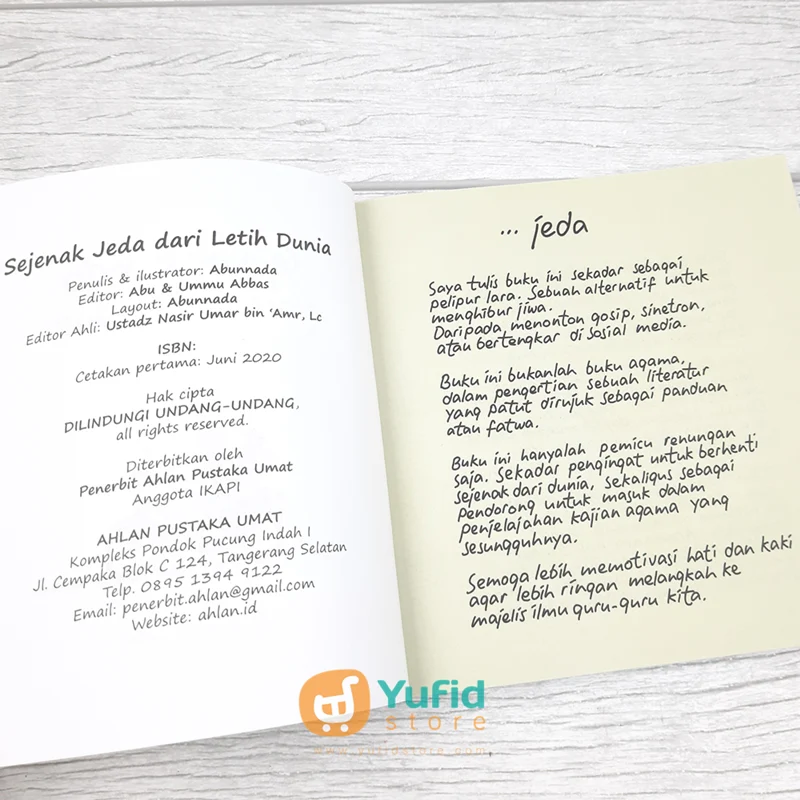 Sejenak Jeda dari Letih Dunia
Penulis & ilustrator: Abunnada
Editor: Abu & Ummu Abbas
Layout: Abunnada
Editor Ahli: Ustadz Nasir Umar bin 'Amr, Lc
ISBN:
Cetakan pertama: Juni 2020
Hak cipta
DILINDUNGI UNDANG-UNDANG,
all rights reserved.
Diterbitkan oleh
Penerbit Ahlan Pustaka Umat
Anggota IKAPI
AHLAN PUSTAKA UMAT
Kompleks Pondok Pucung Indah I
Jl. Cempaka Blok C 124, Tangerang Selatan
Telp. 0895 1394 9122
Email: penerbit.ahlan@gmail.com
Website: ahlan.id
... jeda
Saya tulis buku ini sekadar sebagai
pelipur lara. Sebuah alternatif untuk
menghibur jiwa.
Daripada menonton gosip, sinetron,
atau bertengkar di sosial media.
Buku ini bukanlah buku agama,
dalam pengertian sebuah literatur
yang patut dirujuk sebagai panduan
atau fatwa.
Buku ini hanyalah pemicu renungan
saja. Sekadar pengingat untuk berhenti
sejenak dari dunia, sekaligus sebagai
pendorong untuk masuk dalam
penjelajahan kajian agama yang
sesungguhnya.
Semoga lebih memotivasi hati dan kaki
agar lebih ringan melangkah ke
majelis ilmu guru-guru kita.
Yufid
store
www.yufidstore.com